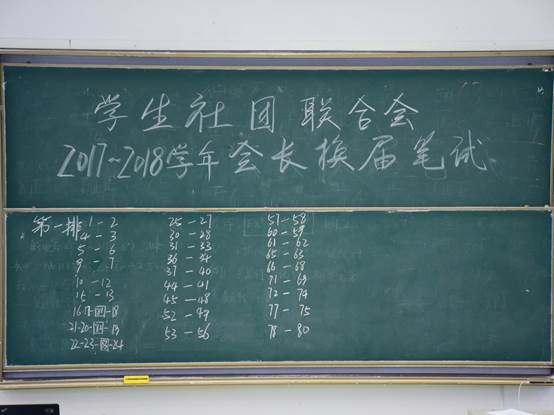 学生社团联合会
2017~2018学年会长换届笔试
第一排 1-2
4-3
5-6
9-7
10-12
15-13
25-27
30-28
31-33
36-34
37-40
44-41
45-48
52-49
53-56
57-58
60-59
61-62
65-63
66-68
71-69
72-74
77-75
78-80